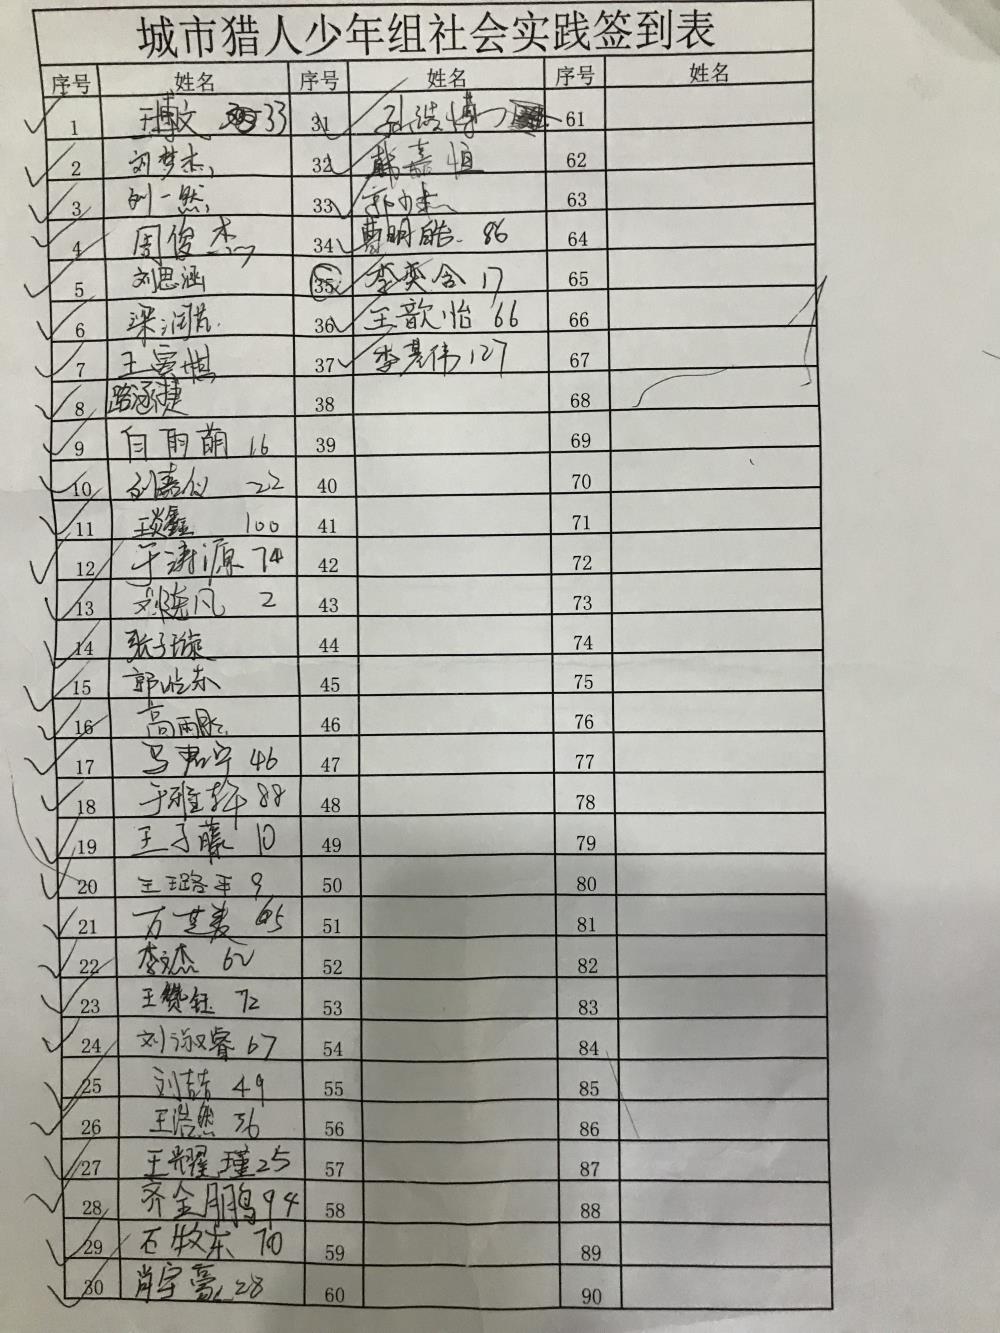 城市猎人少年组社会实践签到表
序号 姓名 序号 姓名 序号 姓名
1 王博文 33 31 孙浩博 61
2 刘梦杰 32 韩嘉恒 62
3 刘一然 33 郭 63
4 周俊杰 34 曹明皓 86 64
5 刘思涵 35 李奕含 17 65
6 梁润 36 王歆怡 66 66
7 王 37 李其伟 127 67
8 路涵捷 38 68
9 白雨萌 16 39 69
10 刘嘉仪 22 40 70
11 王鑫 100 41 71
12 于涛源 74 42 72
13 刘晓凡 2 43 73
14 张子璇 44 74
15 郭屹东 45 75
16 高雨 46 76
17 马君宁 46 47 77
18 于雅轩 88 48 78
19 王子藤 10 49 79
20 王璐 9 50 80
21 万芝美 65 51 81
22 李文杰 62 52 82
23 王赞钰 72 53 83
24 刘淑睿 67 54 84
25 刘喆 49 55 85
26 王浩然 36 56 86
27 王耀瑾 25 57 87
28 齐金鹏 94 58 88
29 石牧东 70 59 89
30 肖宇 28 60 90